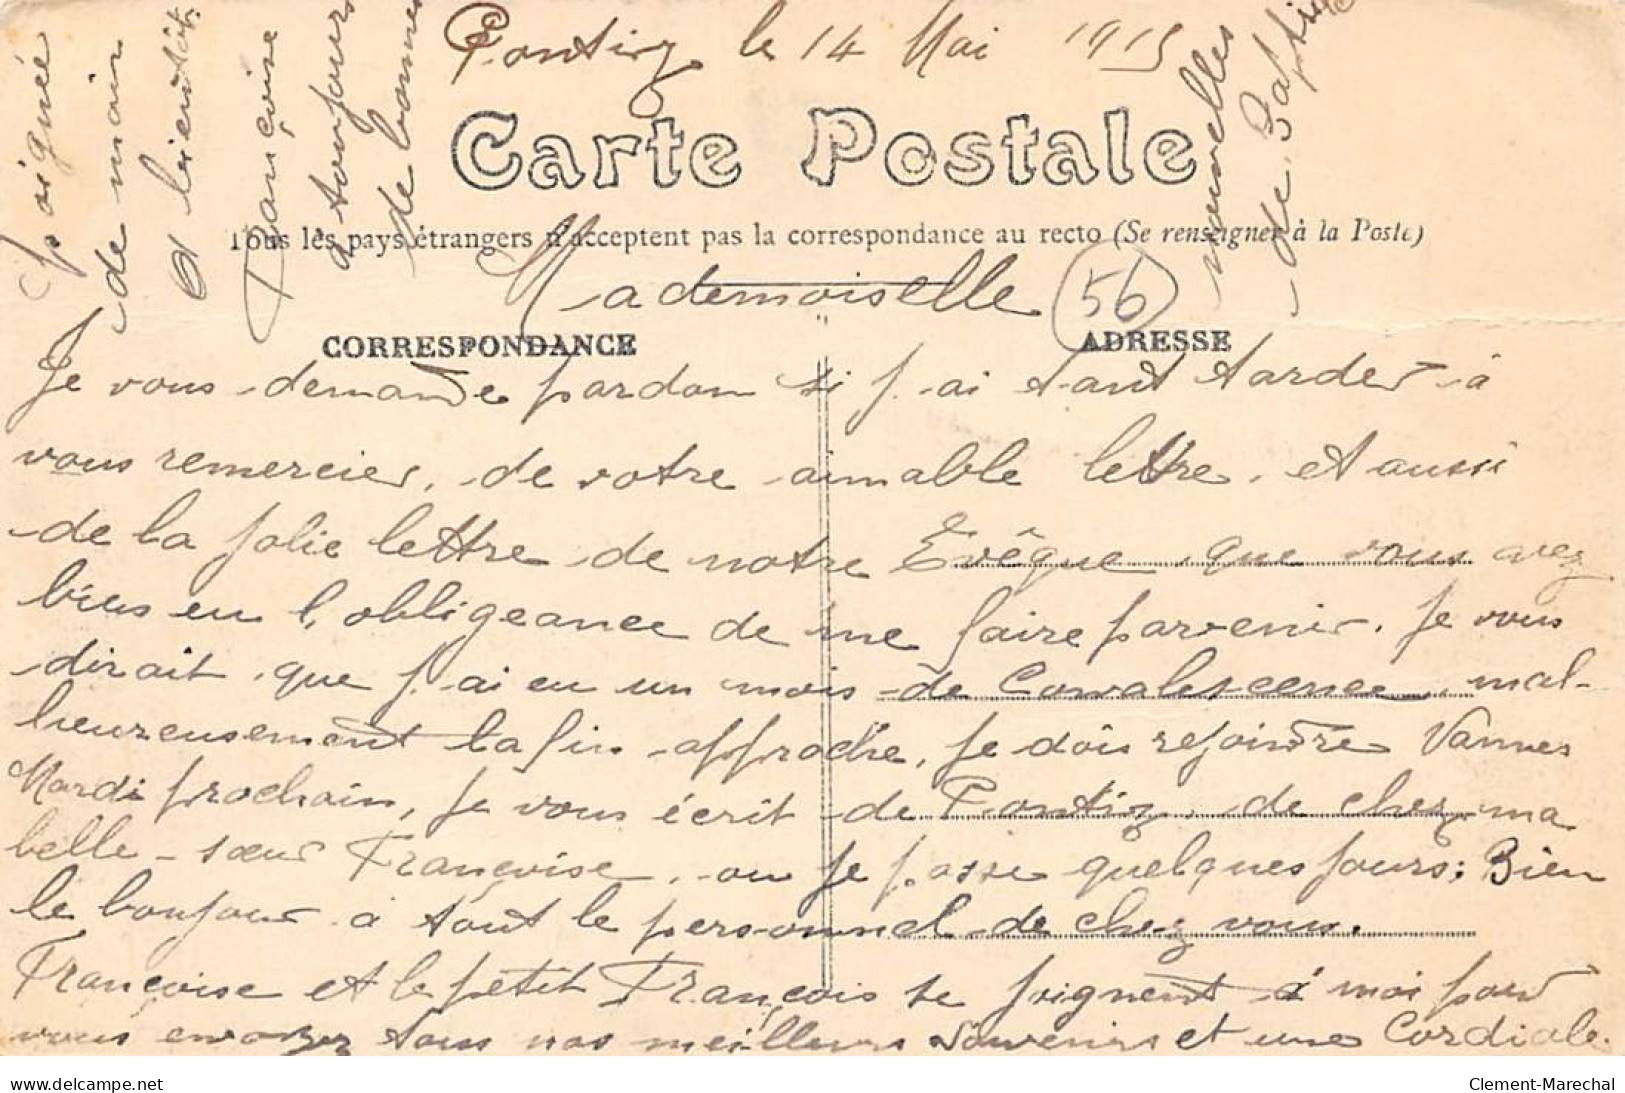 Pontivy le 14 Mai 1915
Carte Postale
Tous les pays étrangers n'acceptent pas la correspondance au recto (Se renseigner à la Poste)
Mademoiselle
56
CORRESPONDANCE
ADRESSE
Je vous demande pardon si j.ai tant tarder à
vous remercier, de votre aimable lettre, et aussi
de la jolie lettre de notre Evêque que vous avez
bien eu l,obligeance de me faire parvenir. Je vous
dirait que j.ai eu un mois de Convalescence mal-
heureusement la fin approche, je dois rejoindre Vannes
Mardi prochain, je vous écrit de Pontivy de chez ma
belle-sœur Françoise, ou je passe quelques jours; Bien
le bonjour à tout le personnel de chez vous.
Françoise et le petit François se joignent à moi pour
vous envoyez tous nos meilleurs Souvenirs et une Cordiale
poignée
de main
A bientôt.
Françoise
a toujours
de bonnes
nouvelles
de Baptiste
www.delcampe.net
Clement-Marechal